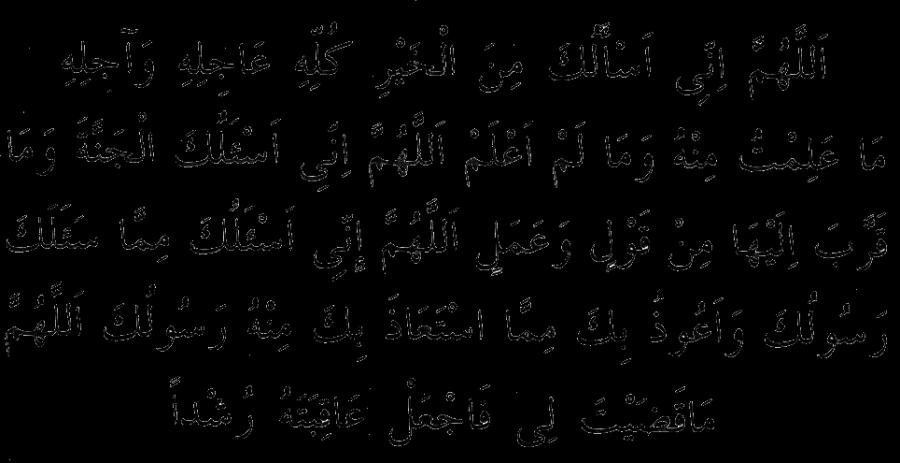 اَللّٰهُمَّ اِنِّي اَسْأَلُكَ مِنَ الْخَيْرِ كُلِّهِ عَاجِلِهِ وَآجِلِهِ
مَا عَلِمْتُ مِنْهُ وَمَا لَمْ اَعْلَمْ اَللّٰهُمَّ اِنِّي اَسْئَلُكَ الْجَنَّةَ وَمَا
قَرَّبَ اِلَيْهَا مِنْ قَوْلٍ وَعَمَلٍ اَللّٰهُمَّ إِنِّي اَسْئَلُكَ مِمَّا سَئَلَكَ
رَسُولُكَ وَاَعُوذُ بِكَ مِمَّا اسْتَعَاذَ بِكَ مِنْهُ رَسُولُكَ اَللّٰهُمَّ
مَاقَضَيْتَ لِي فَاجْعَلْ عَاقِبَتَهُ رُشْداً